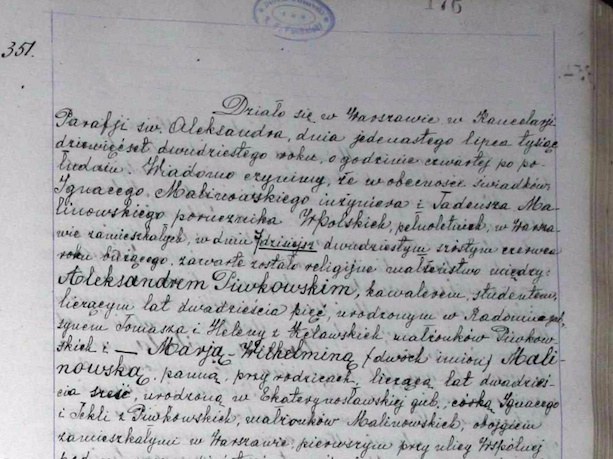 176
351.
Działo się w Warszawie w Kancelarji
Parafji św. Aleksandra, dnia jedenastego lipca tysiąc
dziewięćset dwudziestego roku, o godzinie czwartej po po-
łudniu. Wiadomo czynimy, że w obecności świadków
Ignacego Malinowskiego inżyniera i Tadeusza Ma-
linowskiego porucznika W.Polskich, pełnoletnich, w Warsza-
wie zamieszkałych, w dniu dwudziestym szóstym czerwca
roku bieżącego, zawarte zostało religijne małżeństwo między:
Aleksandrem Piwkowskim, kawalerem, studentem,
liczącym lat dwadzieścia pięć, urodzonym w
synem Tomasza i Heleny z małżonków Piwkow-
skich i — Marją-Wilhelminą (dwóch imion) Mali-
nowską, panną, przy rodzicach, liczącą lat dwadzieś-
cia sześć, urodzoną w Ekaterynosławskiej gub., córką Ignacego
i Tekli z Piwkowskich, małżonków Malinowskich, obojgiem
zamieszkałymi w Warszawie, pierwszym przy ulicy Wspólnej